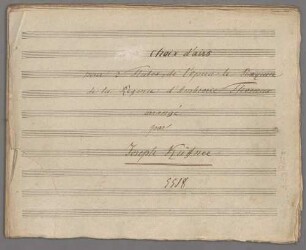 Choix d'airs
pour 2 Flutes, de l'Opera: le Perruquier
de la Regence d'Ambroise Thomas
arrangé
par
Joseph Küffner
5518